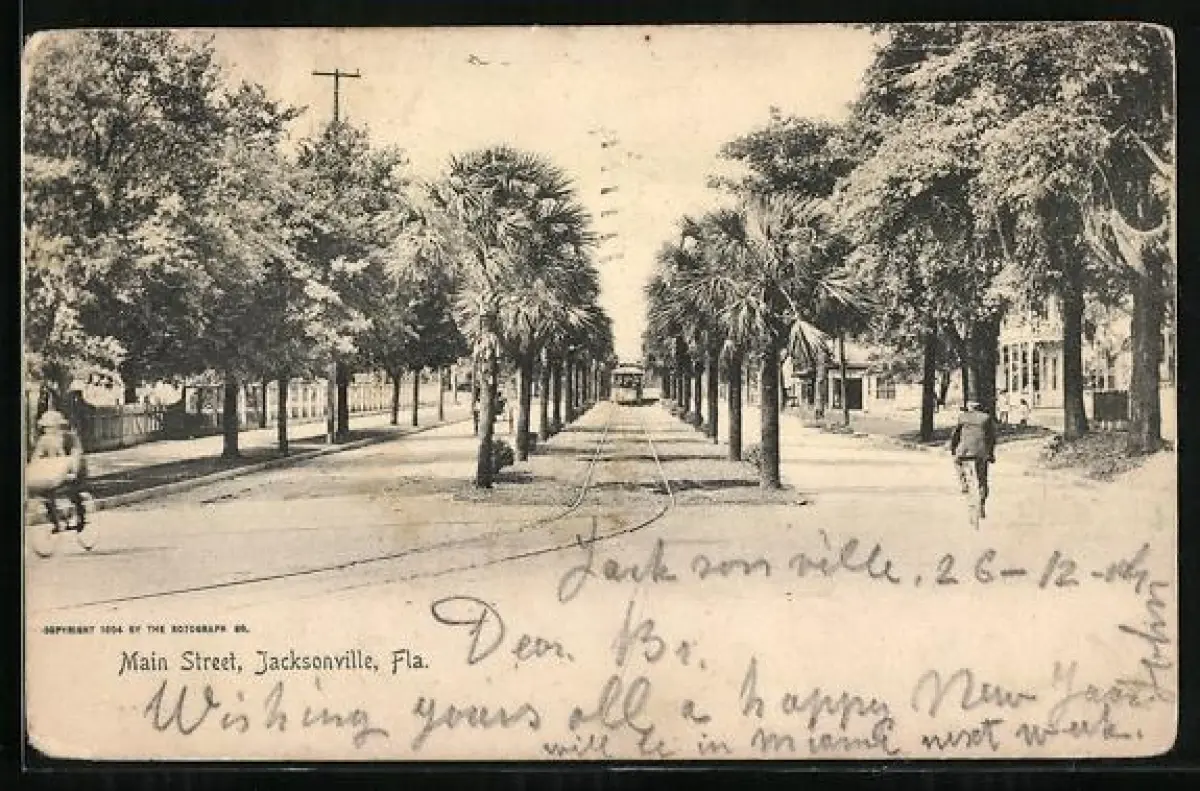 Jacksonville, 26-12-04
COPYRIGHT 1904 BY THE ROTOGRAPH CO.
Dear Br.
Main Street, Jacksonville, Fla.
Wishing yours all a happy New Year
will be in Miami next week.
John